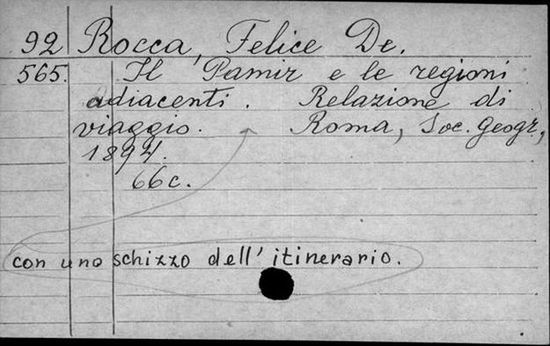 92 Rocca, Felice De.
565. Il Pamir e le regioni
adiacenti. Relazione di
viaggio. Roma, Soc. Geogr.,
1894.
66c.
con uno schizzo dell' itinerario.